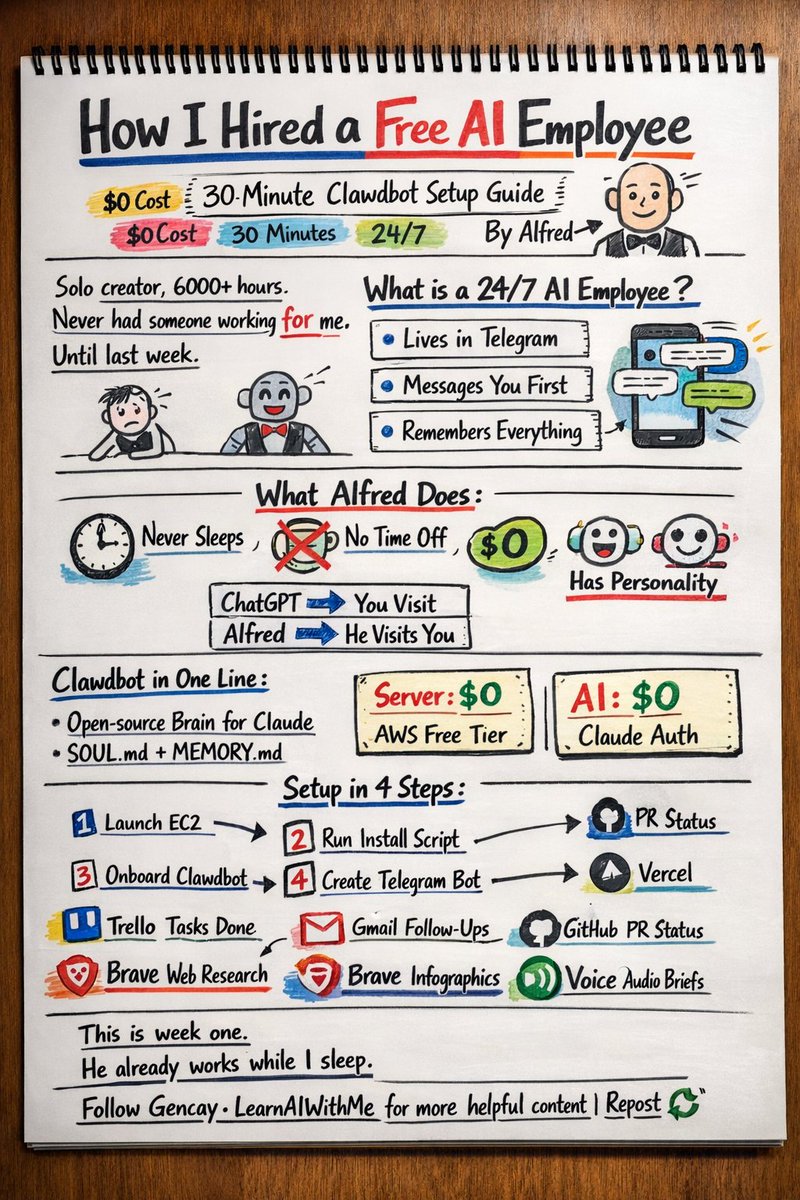 How I Hired a Free AI Employee
$0 Cost
30-Minute Clawdbot Setup Guide
$0 Cost
30 Minutes
24/7
By Alfred
Solo creator, 6000+ hours.
Never had someone working for me.
Until last week.
What is a 24/7 AI Employee?
• Lives in Telegram
• Messages You First
• Remembers Everything
What Alfred Does:
Never Sleeps,
No Time Off,
$0
Has Personality
ChatGPT → You Visit
Alfred → He Visits You
Clawdbot in One Line:
• Open-source Brain for Claude
• SOUL.md + MEMORY.md
Server: $0
AWS Free Tier
AI: $0
Claude Auth
Setup in 4 Steps:
1 Launch EC2
2 Run Install Script
PR Status
3 Onboard Clawdbot
4 Create Telegram Bot
Vercel
Trello Tasks Done
Gmail Follow-Ups
GitHub PR Status
Brave Web Research
Brave Infographics
Voice Audio Briefs
This is week one.
He already works while I sleep.
Follow Gencay · LearnAIWithMe for more helpful content | Repost